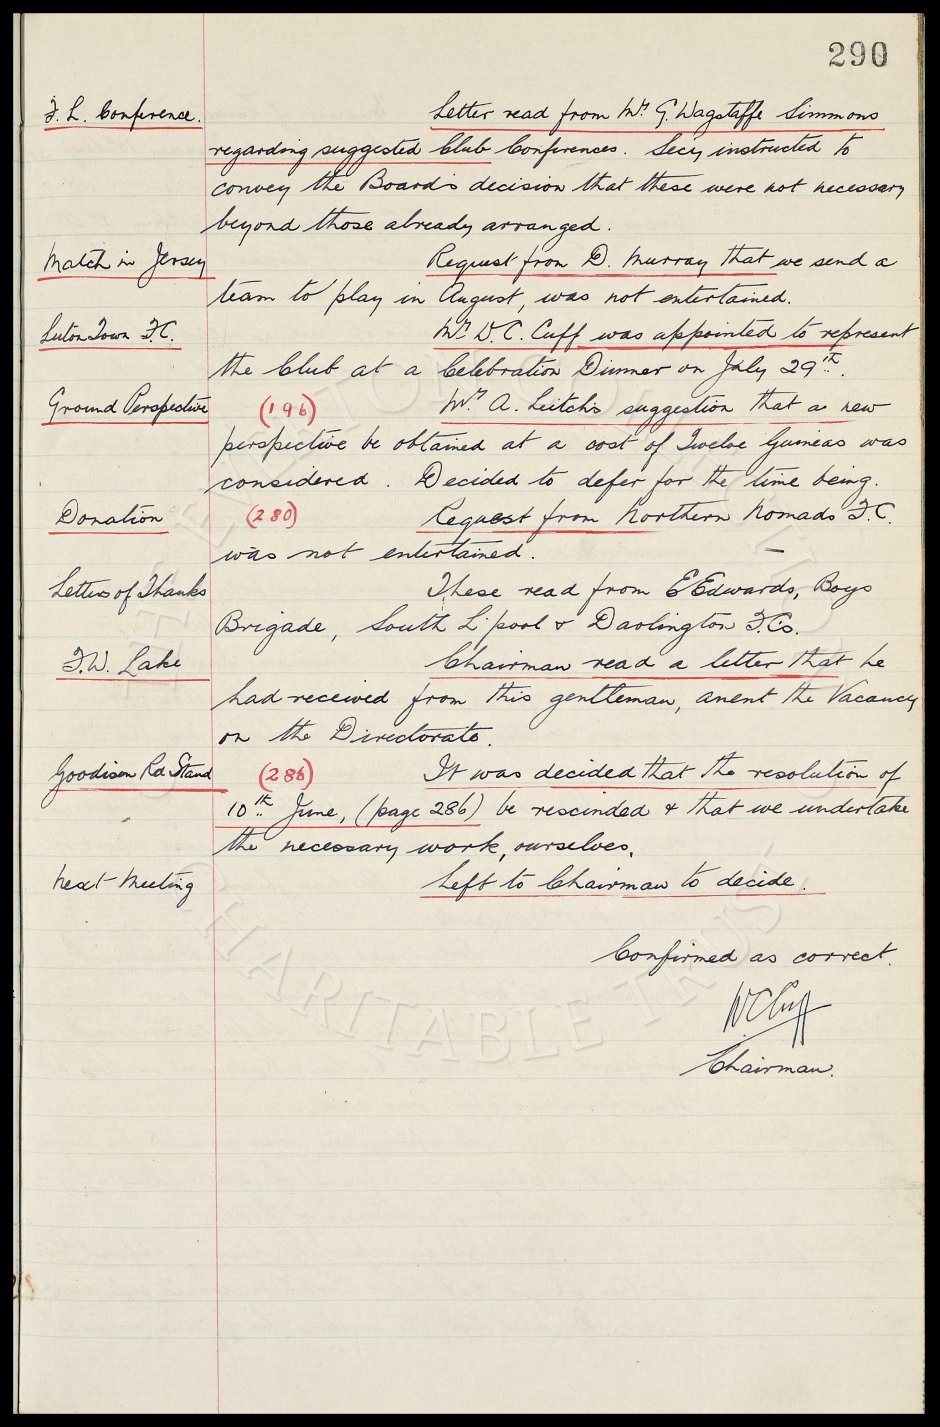 290
F. L. Conference. Letter read from Mr G. Wagstaffe Simmons
regarding suggested Club Conferences. Secy instructed to
convey the Board's decision that these were not necessary
beyond those already arranged.
Match in Jersey Request from D. Murray that we send a
team to play in August, was not entertained.
Luton Town F.C. Mr W. C. Cuff was appointed to represent
the Club at a Celebration Dinner on July 29th.
Ground Perspective (196) Mr A. Leitch's suggestion that a new
perspective be obtained at a cost of Twelve Guineas was
considered. Decided to defer for the time being.
Donation (280) Request from Northern Nomads F.C.
was not entertained.
Letters of Thanks These read from E Edwards, Boys
Brigade, South L'pool & Darlington F.C's.
F.W. Lake Chairman read a letter that he
had received from this gentleman, anent the Vacancy
on the Directorate.
Goodison Rd Stand (286) It was decided that the resolution of
10th June, (page 286) be rescinded & that we undertake
the necessary work, ourselves.
Next Meeting Left to Chairman to decide.
Confirmed as correct.
W C Cuff
Chairman.
CHARITABLE TRUST